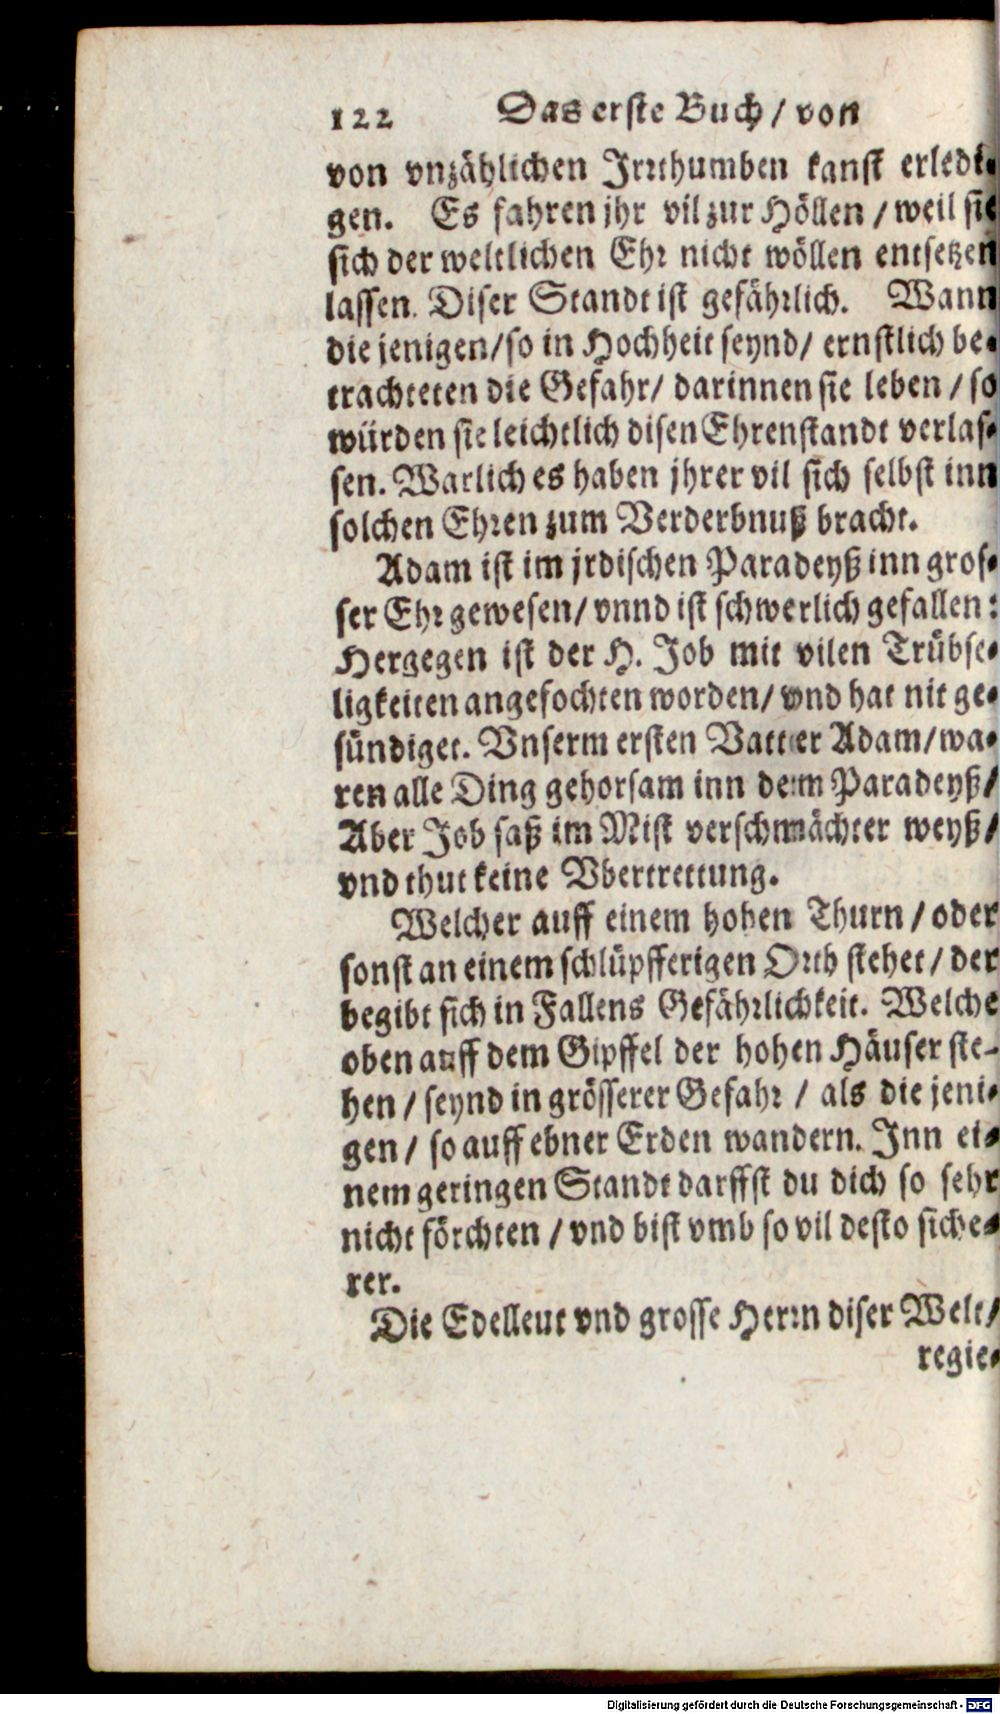 122 Das erste Buch / von
von vnzählichen Irrthumben kanst erledi-
gen. Es fahren jhr vil zur Höllen / weil sie
sich der weltlichen Ehr nicht wöllen entsetzen
lassen. Diser Standt ist gefährlich. Wann
die jenigen/ so in Hochheit seynd/ ernstlich be-
trachteten die Gefahr/ darinnen sie leben / so
würden sie leichtlich disen Ehrenstandt verlas-
sen. Warlich es haben jhrer vil sich selbst inn
solchen Ehren zum Verderbnuß bracht.
Adam ist im jrdischen Paradeyß inn gros-
ser Ehr gewesen/ vnnd ist schwerlich gefallen:
Hergegen ist der H. Job mit vilen Trübse-
ligkeiten angefochten worden/ vnd hat nit ge-
sündiget. Vnserm ersten Vatter Adam/ wa-
ren alle Ding gehorsam inn dem Paradeyß/
Aber Job saß im Mist verschmächter weyß/
vnd thut keine Vbertrettung.
Welcher auff einem hohen Thurn / oder
sonst an einem schlüpfferigen Orth stehet / der
begibt sich in Fallens Gefährlichkeit. Welche
oben auff dem Gipffel der hohen Häuser ste-
hen / seynd in grösserer Gefahr / als die jeni-
gen / so auff ebner Erden wandern. Inn ei-
nem geringen Standt darffst du dich so sehr
nicht förchten / vnd bist vmb so vil desto siche-
rer.
Die Edelleut vnd grosse Herrn diser Welt/
regie-
Digitalisierung gefördert durch die Deutsche Forschungsgemeinschaft - DFG